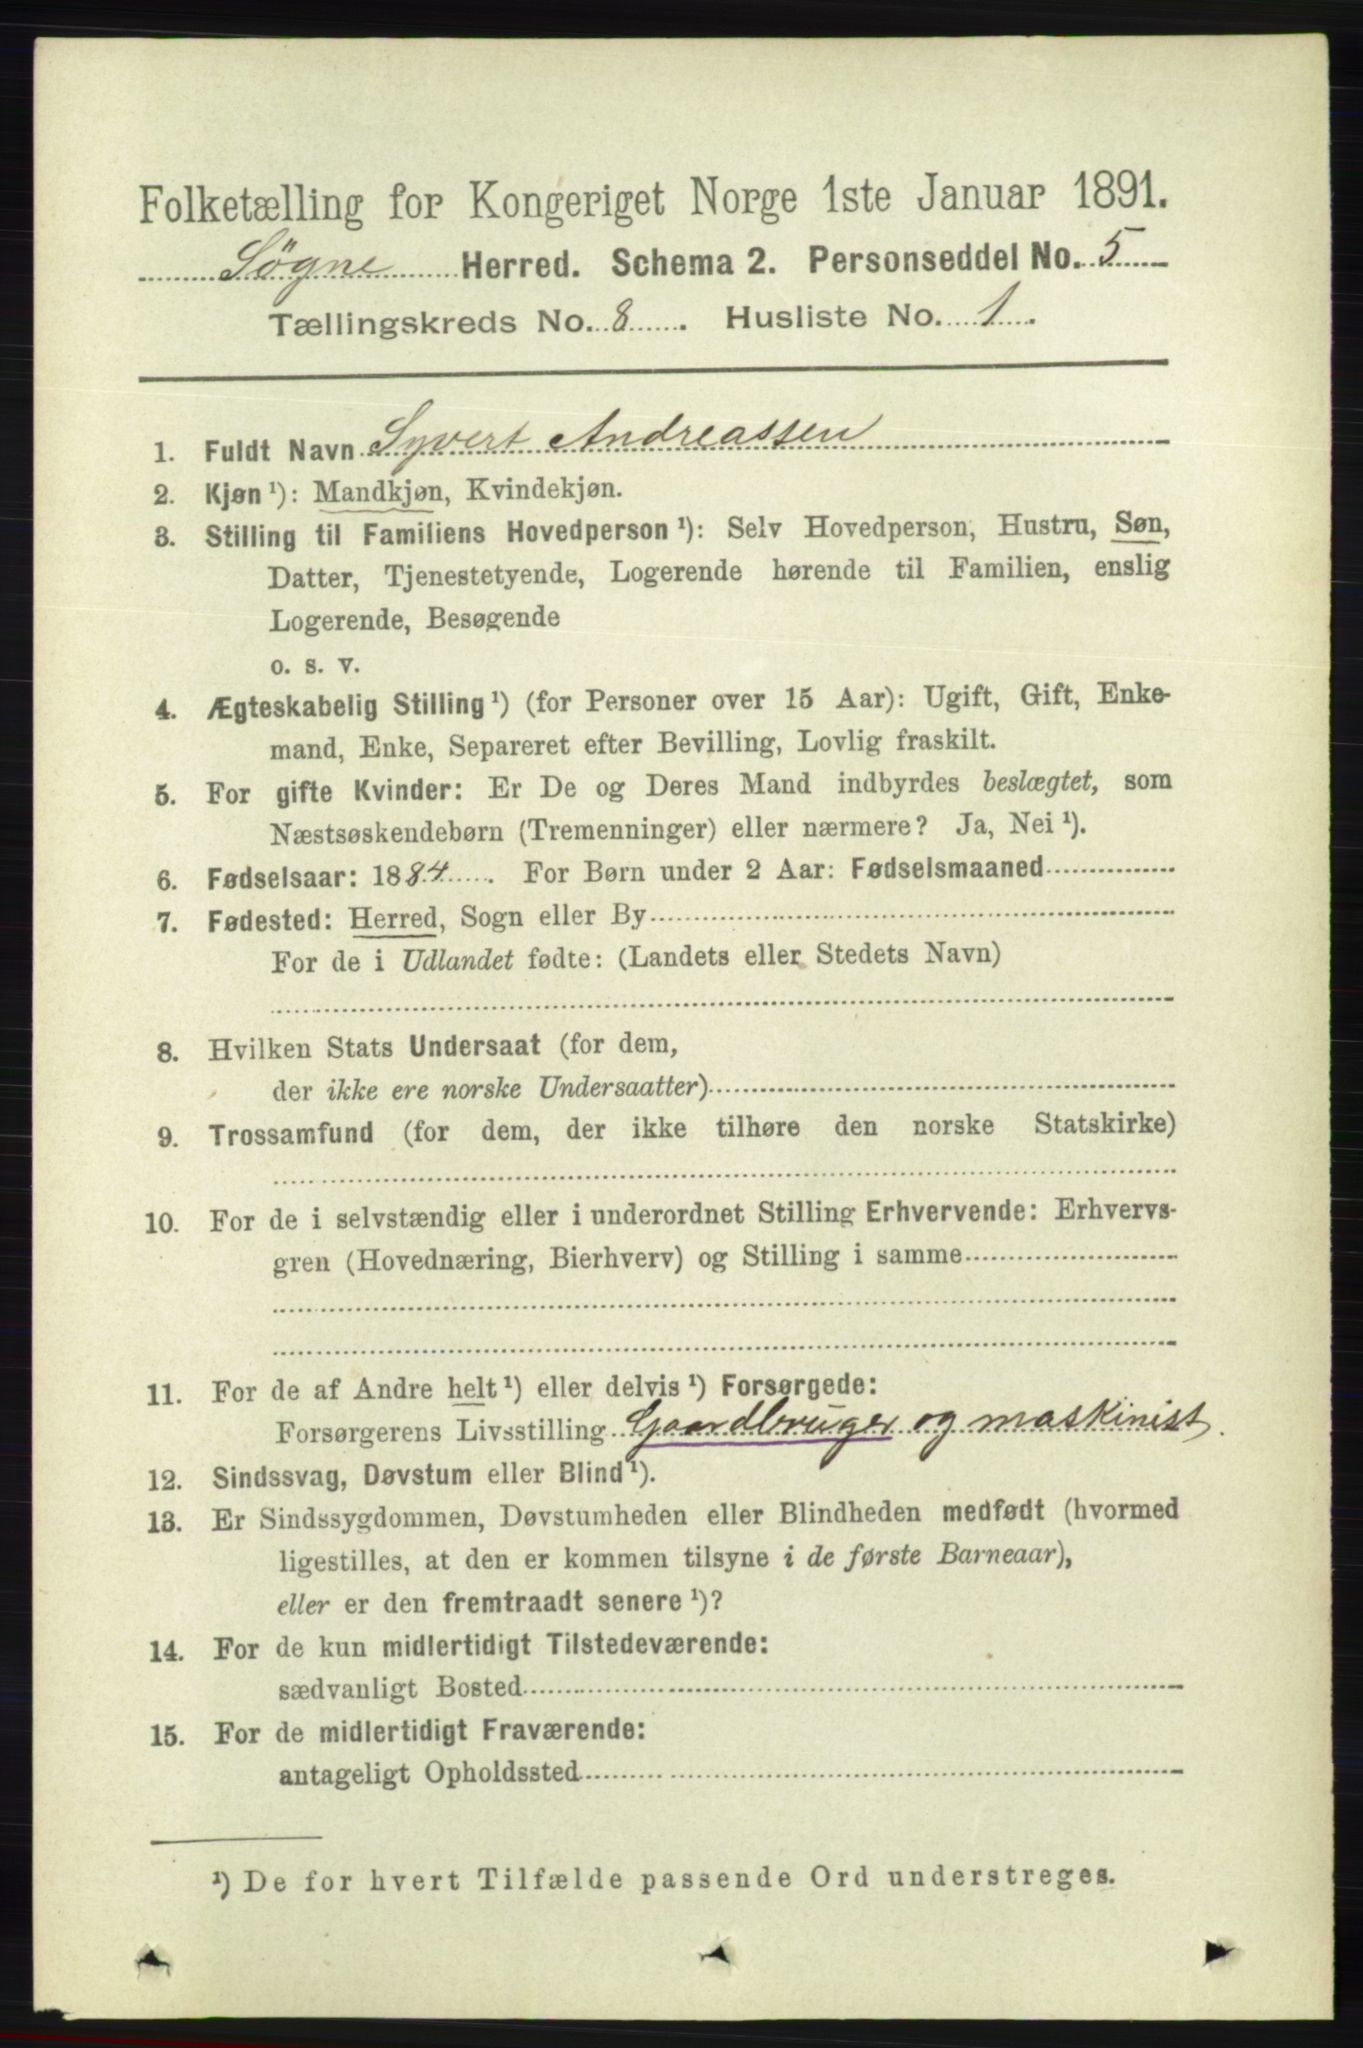 Folketælling for Kongeriget Norge 1ste Januar 1891.
Søgne Herred. Schema 2. Personseddel No. 5
Tællingskreds No. 8. Husliste No. 1.
1. Fuldt Navn Syvert Andreassen
2. Kjøn ¹): Mandkjøn, Kvindekjøn.
3. Stilling til Familiens Hovedperson ¹): Selv Hovedperson, Hustru, Søn,
Datter, Tjenestetyende, Logerende hørende til Familien, enslig
Logerende, Besøgende
o. s. v.
4. Ægteskabelig Stilling ¹) (for Personer over 15 Aar): Ugift, Gift, Enke-
mand, Enke, Separeret efter Bevilling, Lovlig fraskilt.
5. For gifte Kvinder: Er De og Deres Mand indbyrdes beslægtet, som
Næstsøskendebørn (Tremenninger) eller nærmere? Ja, Nei ¹).
6. Fødselsaar: 1884. For Børn under 2 Aar: Fødselsmaaned
7. Fødested: Herred, Sogn eller By
For de i Udlandet fødte: (Landets eller Stedets Navn)
8. Hvilken Stats Undersaat (for dem,
der ikke ere norske Undersaatter)
9. Trossamfund (for dem, der ikke tilhøre den norske Statskirke)
10. For de i selvstændig eller i underordnet Stilling Erhvervende: Erhvervs-
gren (Hovednæring, Bierhverv) og Stilling i samme
11. For de af Andre helt ¹) eller delvis ¹) Forsørgede:
Forsørgerens Livsstilling Gaardbruger og maskinist.
12. Sindssvag, Døvstum eller Blind ¹).
13. Er Sindssygdommen, Døvstumheden eller Blindheden medfødt (hvormed
ligestilles, at den er kommen tilsyne i de første Barneaar),
eller er den fremtraadt senere ¹)?
14. For de kun midlertidigt Tilstedeværende:
sædvanligt Bosted
15. For de midlertidigt Fraværende:
antageligt Opholdssted
¹) De for hvert Tilfælde passende Ord understreges.